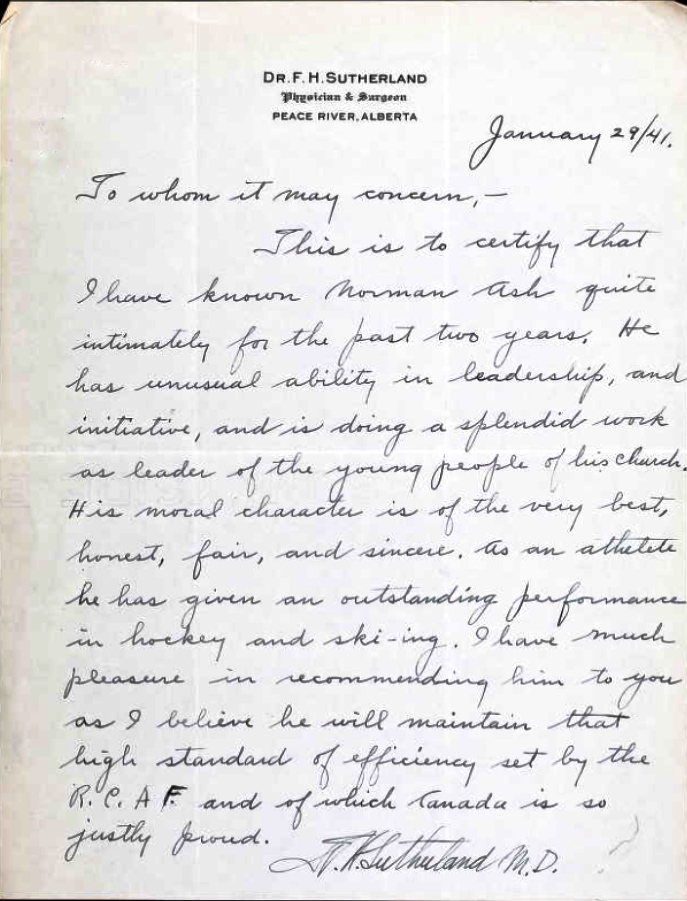 DR. F. H. SUTHERLAND
Physician & Surgeon
PEACE RIVER, ALBERTA
January 29/41.
To whom it may concern,-
This is to certify that
I have known Norman Ash quite
intimately for the past two years. He
has unusual ability in leadership, and
initiative, and is doing a splendid work
as leader of the young people of his church.
His moral character is of the very best,
honest, fair, and sincere. As an athelete
he has given an outstanding performance
in hockey and ski-ing. I have much
pleasure in recommending him to you
as I believe he will maintain that
high standard of efficiency set by the
R. C. A F. and of which Canada is so
justly proud.
F. H. Sutherland M.D.